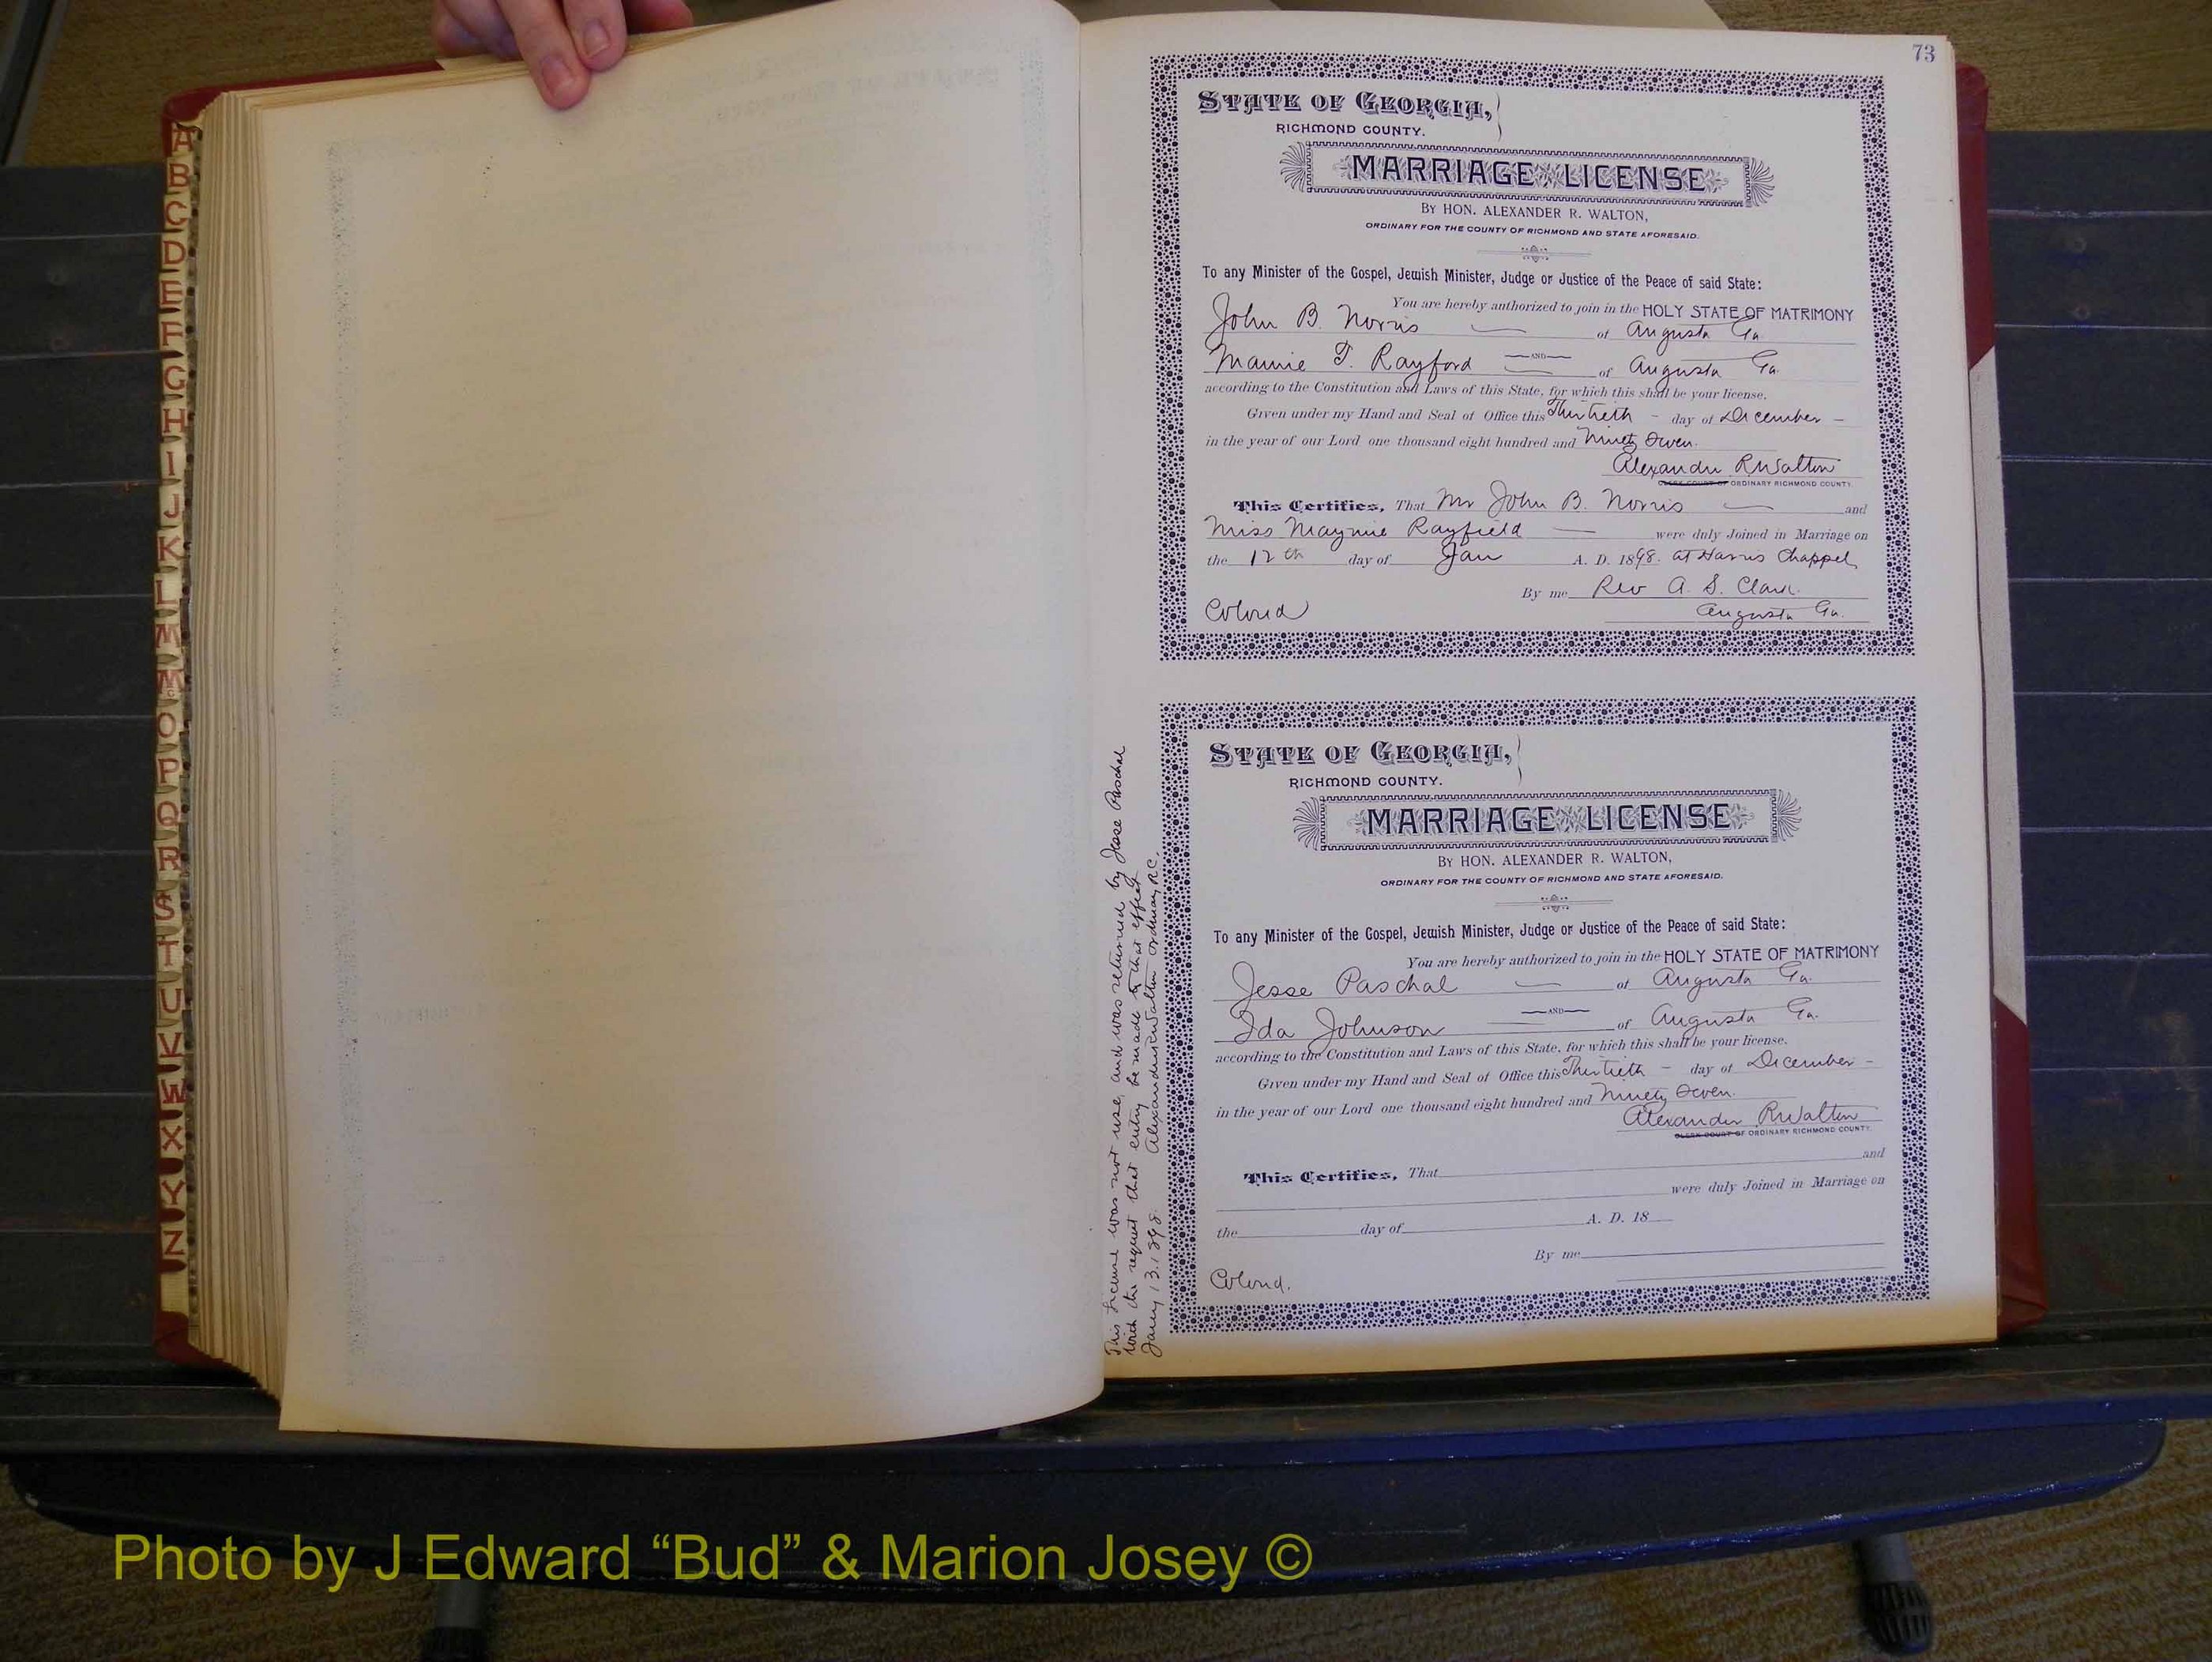 A
B
C
D
E
F
G
H
I
J
K
L
M
Mc
O
P
Q
R
S
T
U
V
W
X
Y
Z
73
STATE OF GEORGIA,
RICHMOND COUNTY.
MARRIAGE LICENSE
By HON. ALEXANDER R. WALTON,
ORDINARY FOR THE COUNTY OF RICHMOND AND STATE AFORESAID.
To any Minister of the Gospel, Jewish Minister, Judge or Justice of the Peace of said State:
You are hereby authorized to join in the HOLY STATE OF MATRIMONY
John B. Norris of Augusta Ga
AND
Mamie T. Rayford of Augusta Ga.
according to the Constitution and Laws of this State, for which this shall be your license.
Given under my Hand and Seal of Office this Thirtieth - day of December -
in the year of our Lord one thousand eight hundred and Ninety Seven.
Alexander R Walton
CLERK COURT OF ORDINARY RICHMOND COUNTY.
This Certifies, That Mr John B. Norris and
Miss Maymie Rayfield were duly Joined in Marriage on
the 12th day of Jan A. D. 1898. at Harris Chappel
By me Rev A. S. Clark.
Colored Augusta Ga.
This license was not use, and was returned by Jesse Paschal
with the request that entry be made to that effect
Jany 13. 1898. Alexander R Walton Ordinary R.C.
STATE OF GEORGIA,
RICHMOND COUNTY.
MARRIAGE LICENSE
By HON. ALEXANDER R. WALTON,
ORDINARY FOR THE COUNTY OF RICHMOND AND STATE AFORESAID.
To any Minister of the Gospel, Jewish Minister, Judge or Justice of the Peace of said State:
You are hereby authorized to join in the HOLY STATE OF MATRIMONY
Jesse Paschal of Augusta Ga.
AND
Ida Johnson of Augusta Ga.
according to the Constitution and Laws of this State, for which this shall be your license.
Given under my Hand and Seal of Office this Thirtieth - day of December -
in the year of our Lord one thousand eight hundred and Ninety Seven.
Alexander R Walton
CLERK COURT OF ORDINARY RICHMOND COUNTY.
This Certifies, That and
were duly Joined in Marriage on
the day of A. D. 18
By me
Colored.
Photo by J Edward “Bud” & Marion Josey ©